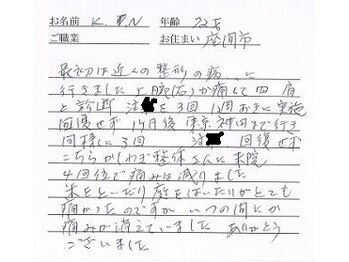 お名前 K.M.N 年齢 72才
ご職業 お住まい 座間市
最初は近くの整形の病
行きました 上腕(右)が痛くて四肩
と診断 注 を3回 1週おきに実施
回復せず 1ヶ月後 東京神田まで行き
同様に3回 注 回復せず
こちらかしわぎ整体さんに来院
4回位で痛みは減りました
米をといだり 服をぬいだりがとても
痛かったのですが いつの間にか
痛みが消えていました ありがとう
ございました